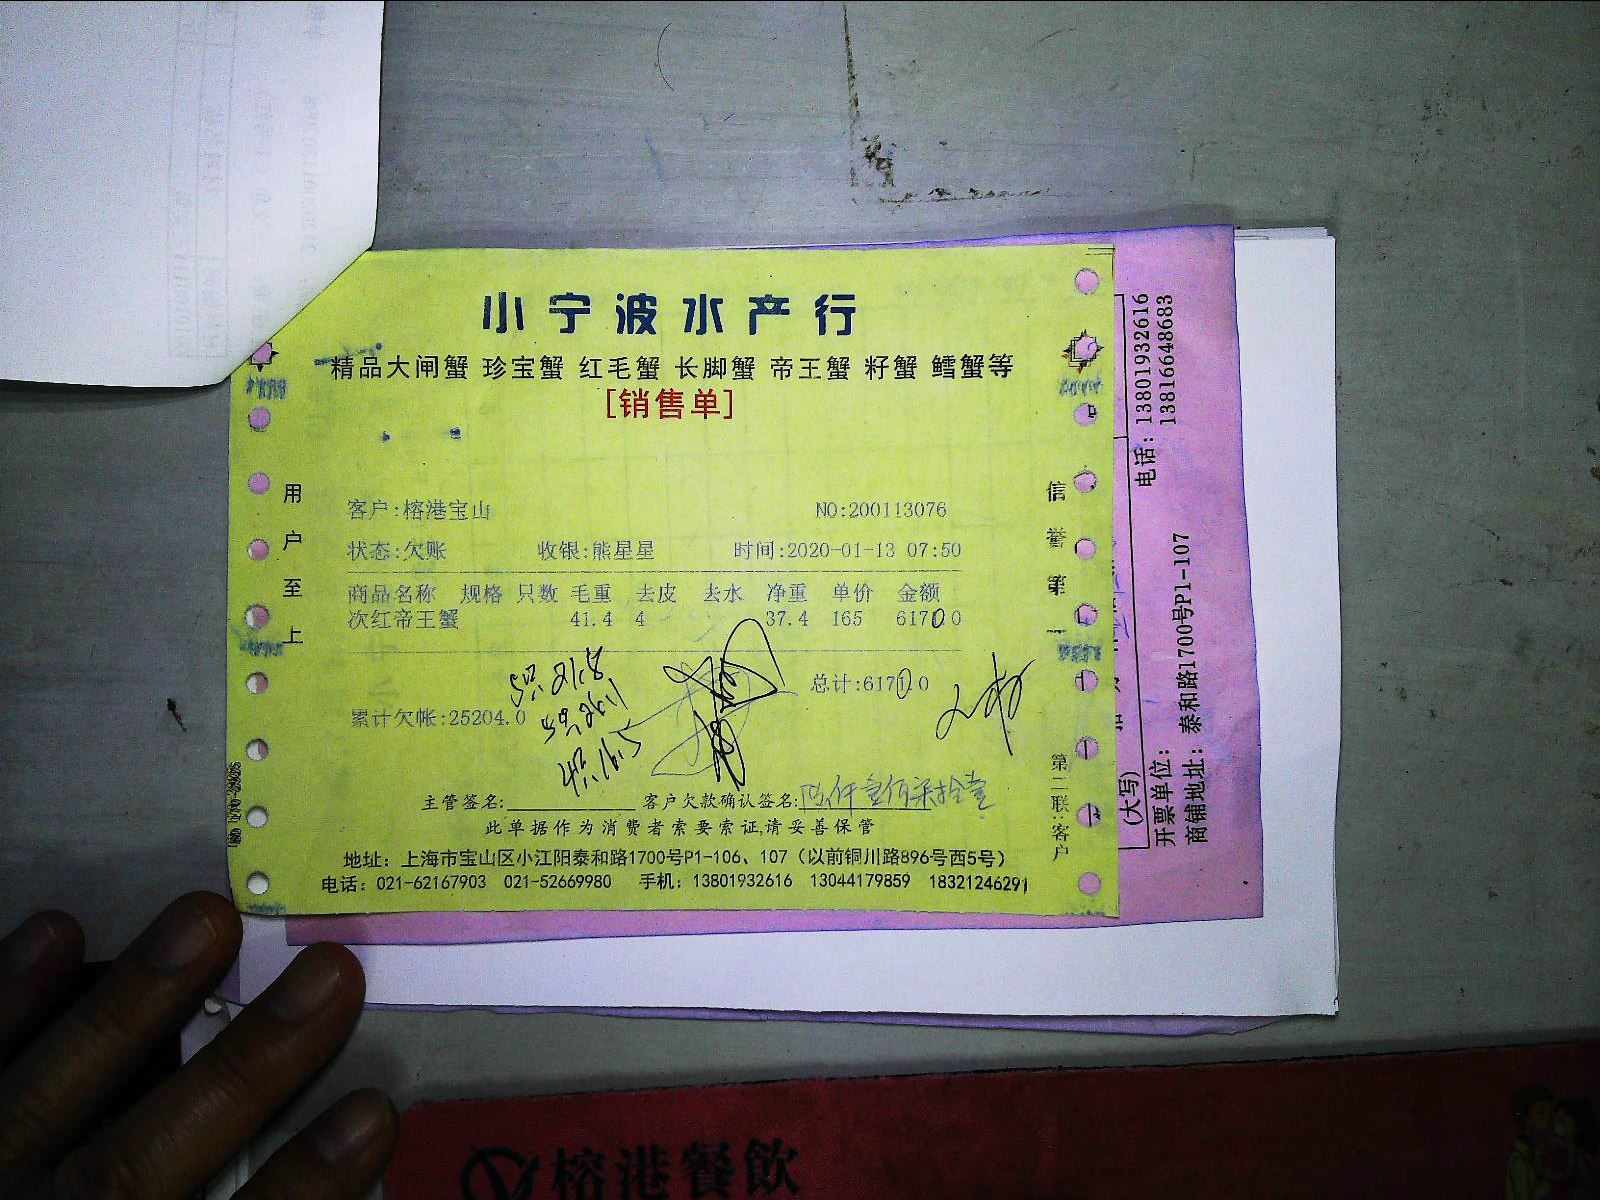 小宁波水产行
精品大闸蟹 珍宝蟹 红毛蟹 长脚蟹 帝王蟹 籽蟹 鳕蟹等
[销售单]
用户至上
信誉第一
客户:榕港宝山 NO:200113076
状态:欠账 收银:熊星星 时间:2020-01-13 07:50
商品名称 规格 只数 毛重 去皮 去水 净重 单价 金额
次红帝王蟹 41.4 4 37.4 165 6171.0
总计:6171.0
累计欠帐:25204.0
主管签名: 客户欠款确认签名:陆仟壹佰柒拾壹
此单据作为消费者索要索证,请妥善保管
地址：上海市宝山区小江阳泰和路1700号P1-106、107（以前铜川路896号西5号）
电话：021-62167903 021-52669980 手机：13801932616 13044179859 18321246291
第二联:客户
电话：13801932616
13816648683
(大写)
开票单位：
商铺地址：泰和路1700号P1-107
榕港餐飲